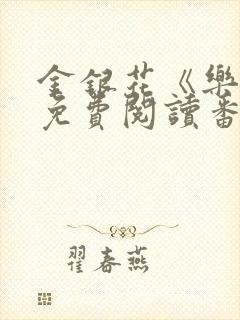 金銀花《樂
免費閱讀番
翟春燕